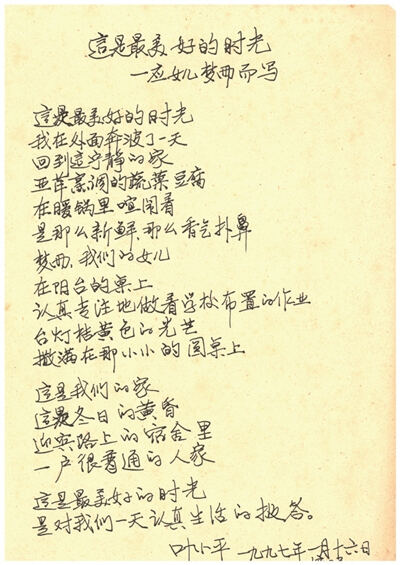 這是最美好的时光
一应女儿梦西而写
這是最美好的时光
我在外面奔波了一天
回到這宁静的家
亚萍烹调的蔬菜豆腐
在暖锅里喧闹着
是那么新鲜,那么香气扑鼻
梦西,我们的女儿
在阳台的桌上
认真专注地做着学校布置的作业
台灯桔黄色的光芒
撒满在那小小的圆桌上
這是我们的家
這是冬日的黄昏
迎宾路上的宿舍里
一户很普通的人家
這是最美好的时光
是对我们一天认真生活的报答。
叶小平 一九九七年一月十六日